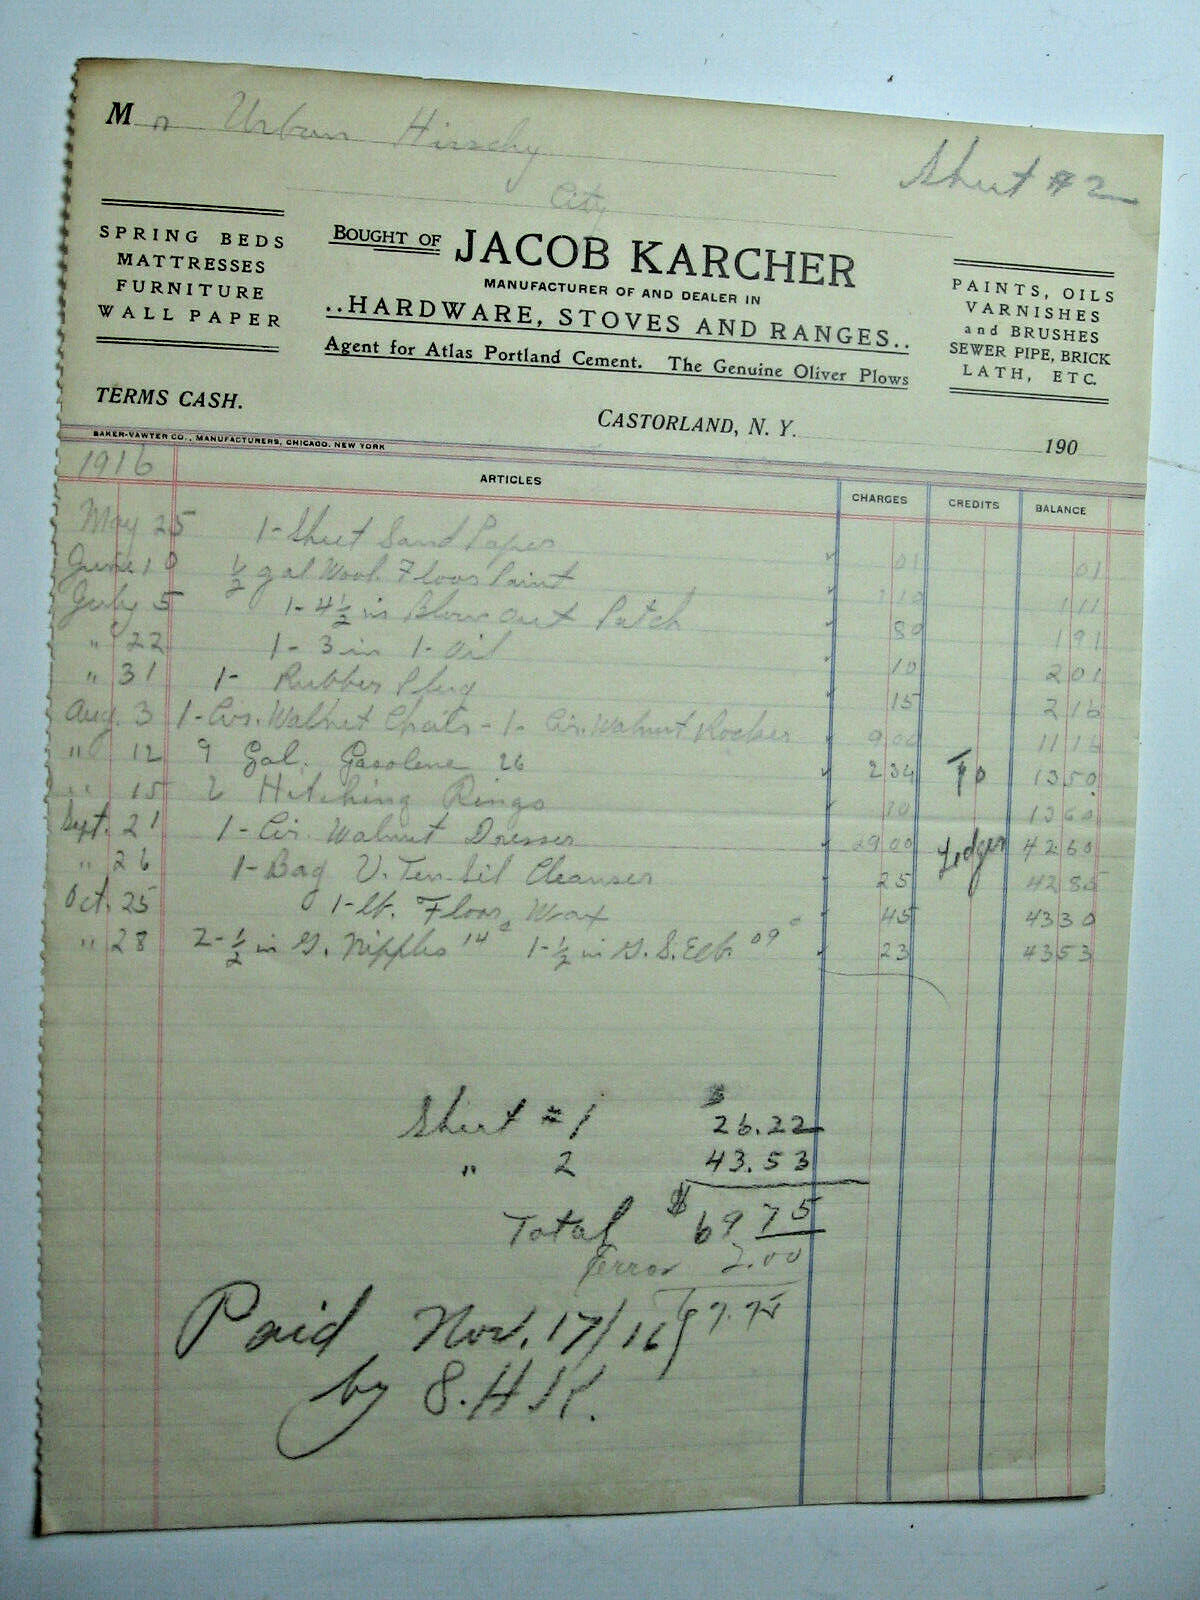 Mr Urban Hirschy
Sheet #2
City
SPRING BEDS
MATTRESSES
FURNITURE
WALL PAPER
BOUGHT OF JACOB KARCHER
MANUFACTURER OF AND DEALER IN
..HARDWARE, STOVES AND RANGES..
Agent for Atlas Portland Cement. The Genuine Oliver Plows
PAINTS, OILS
VARNISHES
and BRUSHES
SEWER PIPE, BRICK
LATH, ETC.
TERMS CASH.
CASTORLAND, N. Y. 190
BAKER-VAWTER CO., MANUFACTURERS, CHICAGO. NEW YORK
1916 ARTICLES CHARGES CREDITS BALANCE
May 25 1-Sheet Sand Paper 01 01
June 10 ½ gal Floor Paint 1 10 1 11
July 5 1-4½ in Blow out Patch 80 1 91
" 22 1-3 in 1-Oil 10 2 01
" 31 1- Rubber Plug 15 2 16
Aug. 3 1-Cir. Walnut Chair-1-Cir. Walnut Rocker 9 00 11 16
" 12 9 Gal. Gasolene 26 2 34 To 13 50
" 15 2 Hitching Rings 10 13 60
Sept. 21 1-Cir. Walnut Dresser 29 00 Ledger 42 60
" 26 1-Bag U-Ten-Sil Cleanser 25 42 85
Oct. 25 1-lb. Floor Wax 45 43 30
" 28 2-½ in G. Nipples 14c 1-½ in G.S. Elb. 09c 23 43 53
Sheet #1 $26.22
" 2 43.53
Total $69 75
Error 2.00
67.75
Paid Nov. 17/16
by S.H.K.